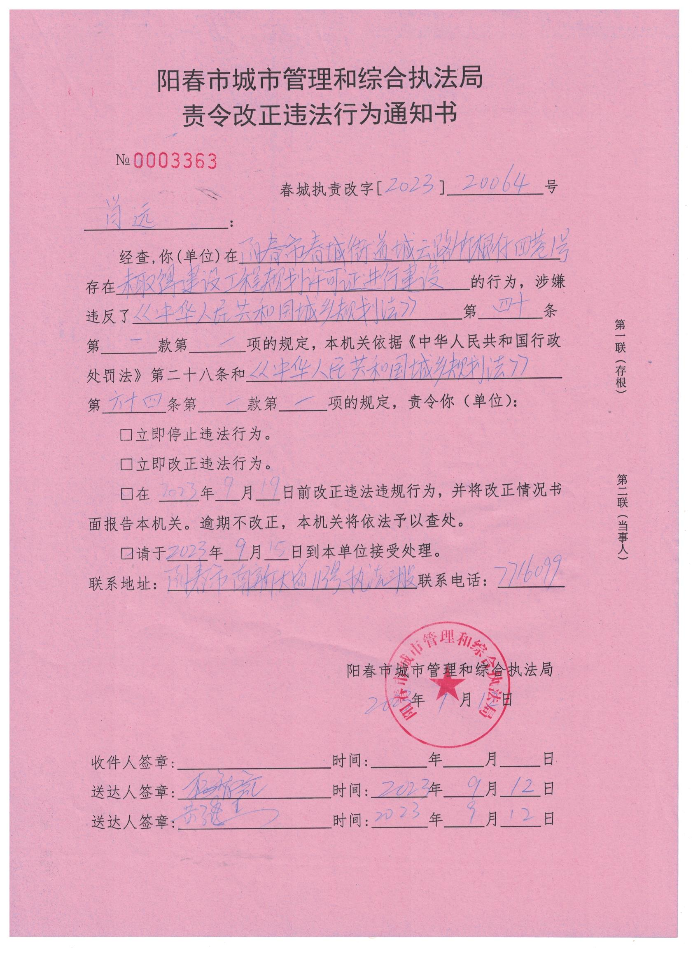 阳春市城市管理和综合执法局
责令改正违法行为通知书
№0003363
春城执责改字[2023]20064号
肖远:
经查,你(单位)在阳春市春城街道城云路竹根仔四巷1号
存在未取得建设工程规划许可证进行建设的行为,涉嫌
违反了《中华人民共和国城乡规划法》第四十条
第一款第一项的规定,本机关依据《中华人民共和国行政
处罚法》第二十八条和《中华人民共和国城乡规划法》
第六十四条第一款第一项的规定,责令你(单位):
□立即停止违法行为。
□立即改正违法行为。
□在2023年9月19日前改正违法违规行为,并将改正情况书
面报告本机关。逾期不改正,本机关将依法予以查处。
□请于2023年9月15日到本单位接受处理。
联系地址:阳春市南新大道113号执法股联系电话:7716099
阳春市城市管理和综合执法局
2023年9月1日
阳春市城市管理和综合执法局
收件人签章:时间:年月日
送达人签章:时间:2023年9月12日
送达人签章:时间:2023年9月12日
第一联(存根)
第二联(当事人)